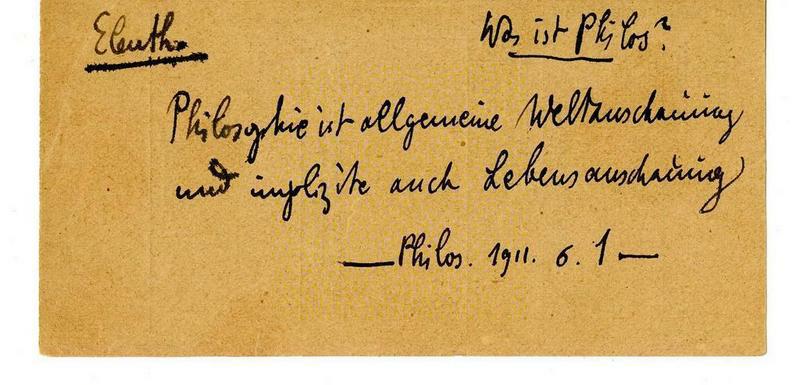 Eleuth.
Was ist Philos?
Philosophie ist allgemeine Weltanschauung
und implizite auch Lebensanschauung
— Philos. 1911. 6. 1 —